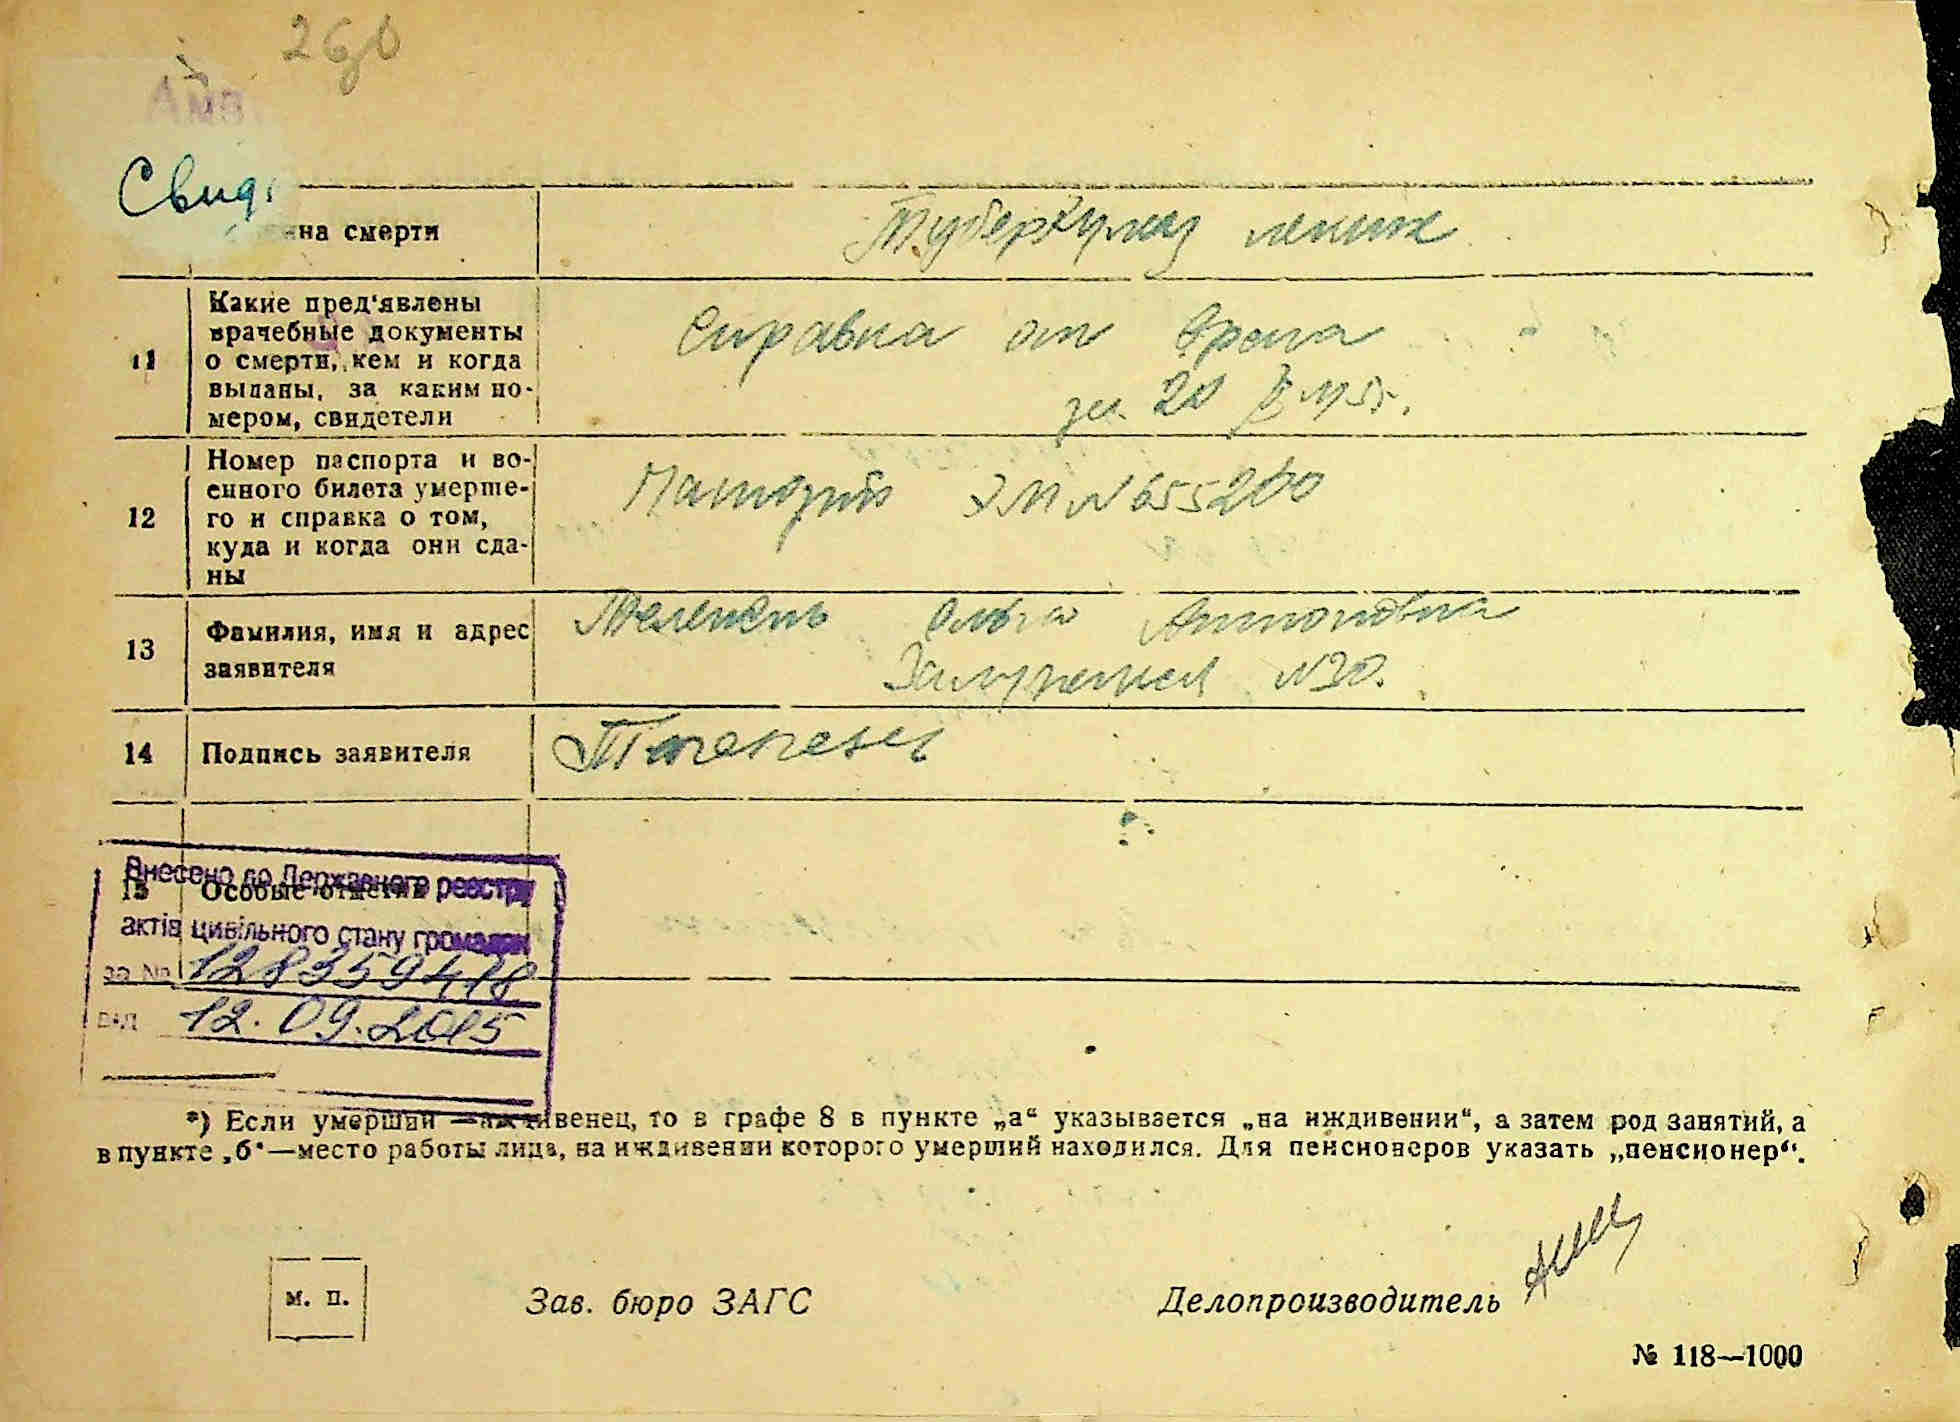 260
Амв
Свид.
ина смерти
Туберкулез легких
11
Какие пред'явлены
врачебные документы
о смерти, кем и когда
выданы, за каким но-
мером, свидетели
Справка от врача
за 20
12
Номер паспорта и во-
енного билета умерше-
го и справка о том,
куда и когда они сда-
ны
Паспорт ЭМ № 655200
13
Фамилия, имя и адрес
заявителя
Телепень Ольга Антоновна
№ 30.
14
Подпись заявителя
Телепень
15
Особые отметки
Внесено до Державного реєстру
актів цивільного стану громадян
за № 128359418
від 12.09.2015
*) Если умерший —иждивенец, то в графе 8 в пункте „а“ указывается „на иждивении“, а затем род занятий, а
в пункте „б“—место работы лица, на иждивении которого умерший находился. Для пенсионеров указать „пенсионер“.
м. п.
Зав. бюро ЗАГС
Делопроизводитель
№ 118—1000